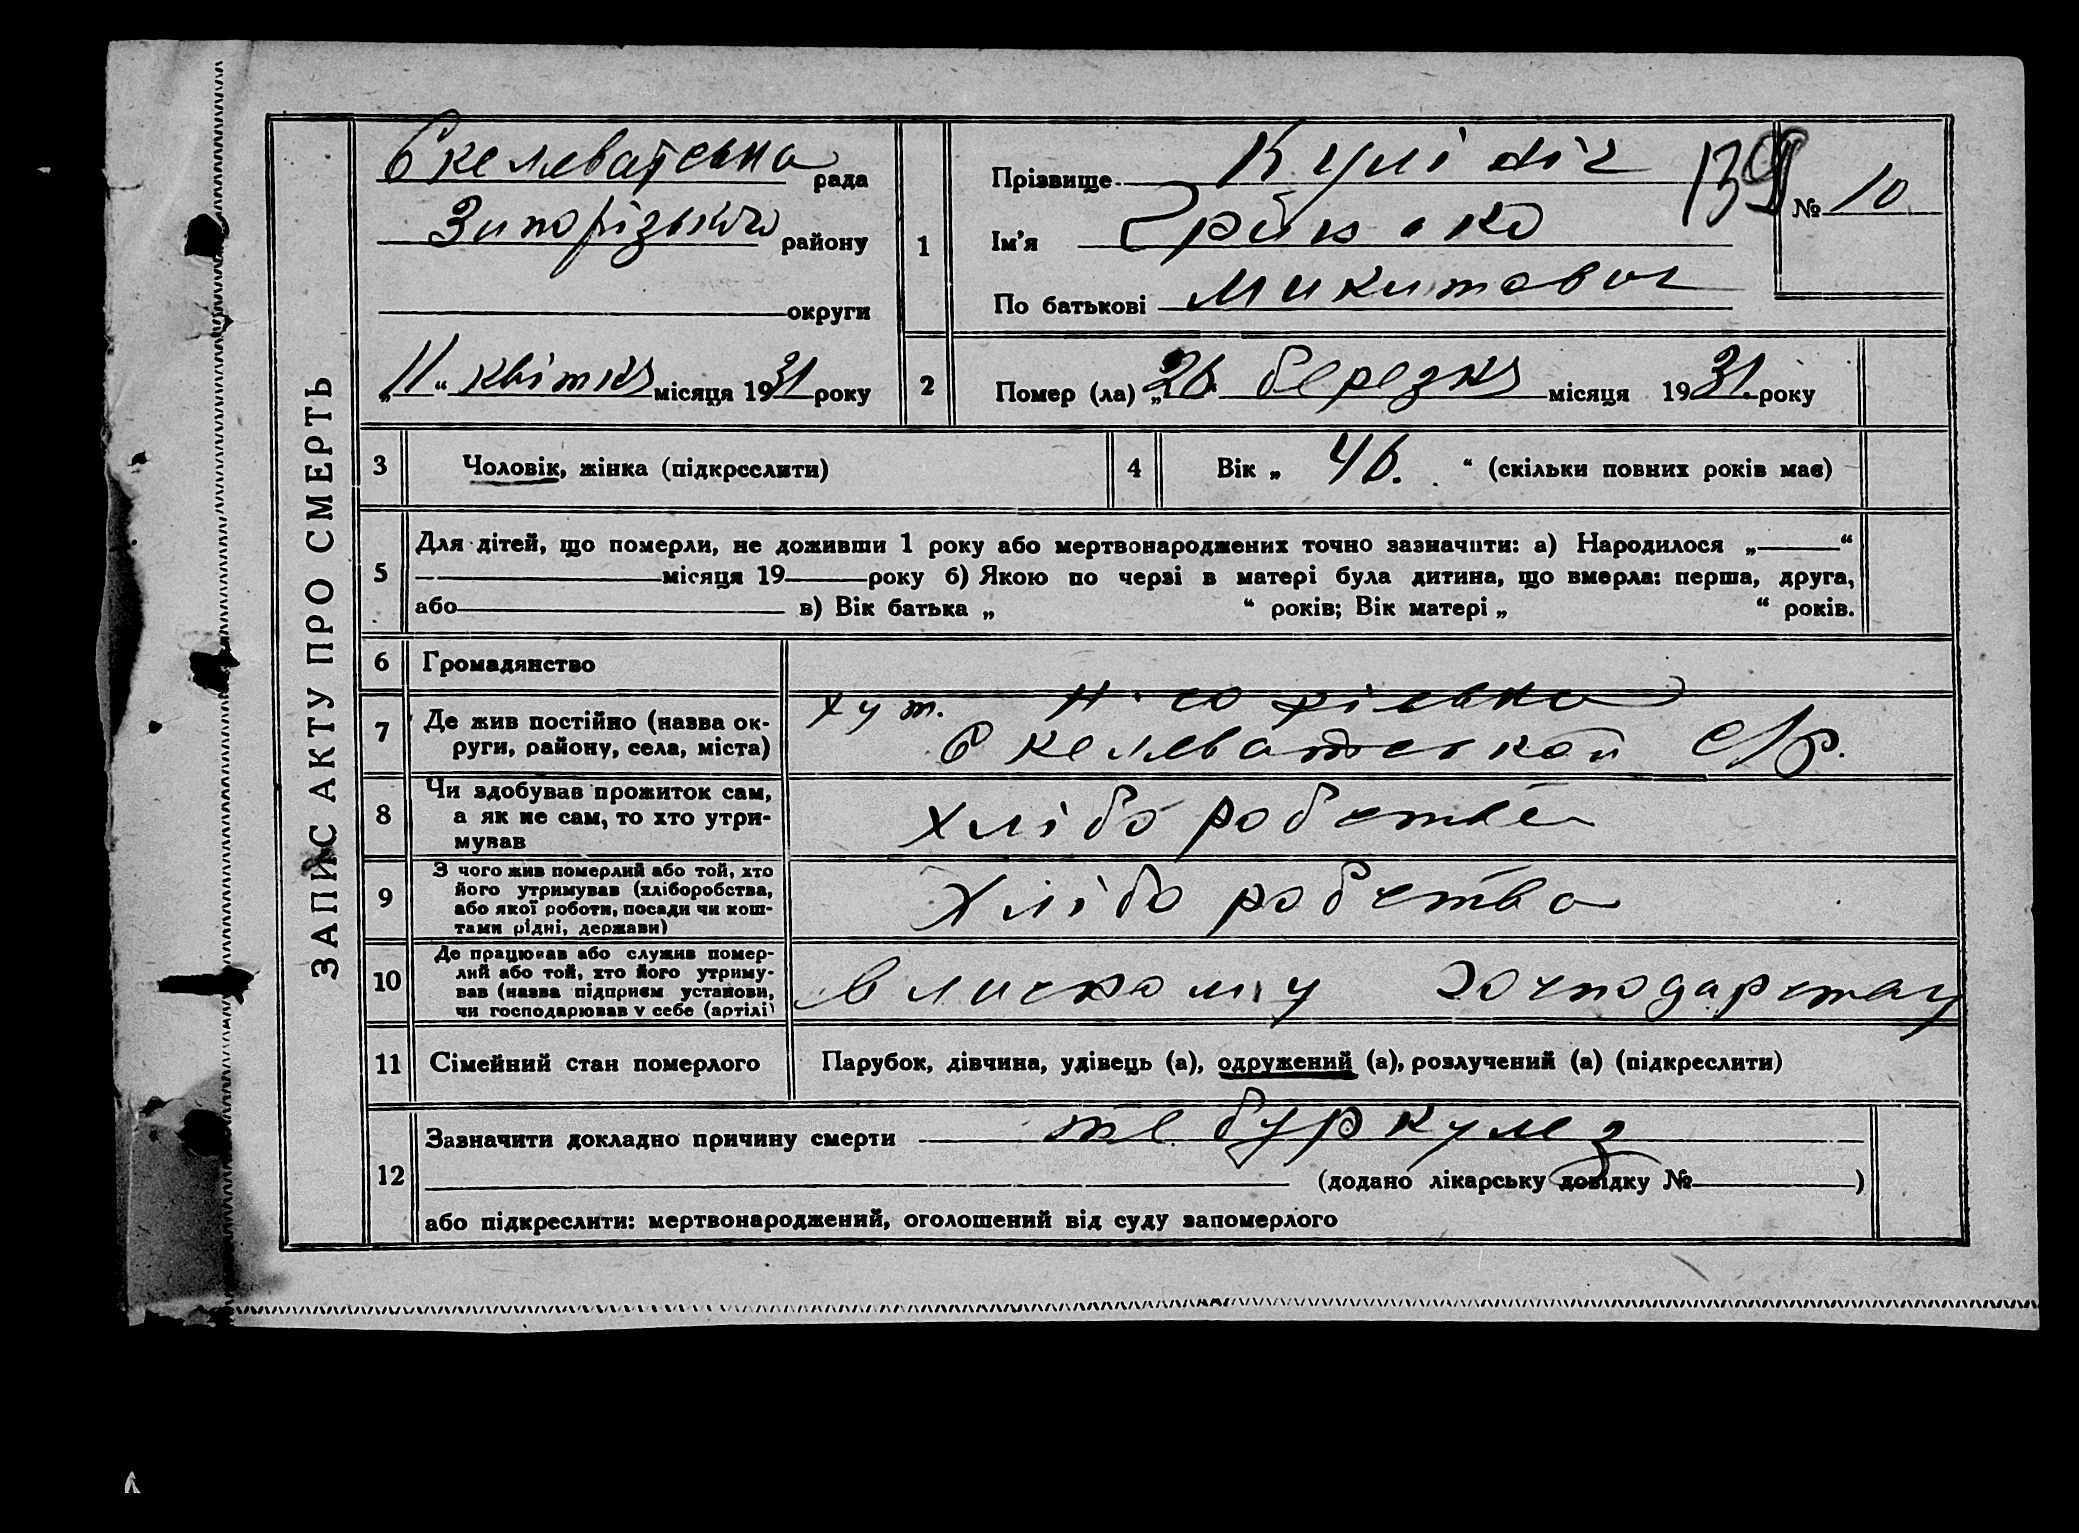 ЗАПИС АКТУ ПРО СМЕРТЬ
Скелеватська рада
Запорізького району
округи
„11“ квітня місяця 1931 року
1
Прізвище
Ім'я Грицько
По батькові Микитович
139
№ 10
2
Помер (ла) „26 березня місяця 1931. року
3 Чоловік, жінка (підкреслити)
4 Вік „ 46. “ (скільки повних років має)
5
Для дітей, що померли, не доживши 1 року або мертвонароджених точно зазначити: а) Народилося „ “
місяця 19 року б) Якою по черзі в матері була дитина, що вмерла: перша, друга,
або в) Вік батька „ “ років; Вік матері „ “ років.
6 Громадянство
7 Де жив постійно (назва ок-
руги, району, села, міста)
хут.
Скелеватської с/р.
8 Чи здобував прожиток сам,
а як не сам, то хто утри-
мував
Хліборобство
9 З чого жив померлий або той, хто
його утримував (хліборобства,
або якої роботи, посади чи кош-
тами рідні, держави)
Хліборобства
10 Де працював або служив помер-
лий або той, хто його утриму-
вав (назва підприєм установи,
чи господарював у себе (артілі)
В лиському господарству
11 Сімейний стан померлого
Парубок, дівчина, удівець (а), одружений (а), розлучений (а) (підкреслити)
12 Зазначити докладно причину смерти тебуркулез
(додано лікарську довідку № )
або підкреслити: мертвонароджений, оголошений від суду запомерлого